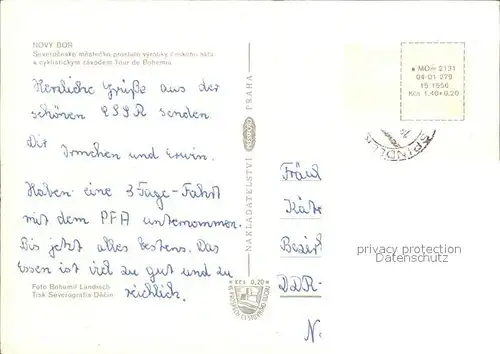 NOVÝ BOR
Severočeské městečko proslulo výrobky českého skla
a cyklistickým závodem Tour de Bohemia
Herzliche Grüße aus der
schönen ČSSR senden
Dir Irmchen und Erwin.
Haben eine 3 Tage-Fahrt
mit dem PFH unternommen.
Bis jetzt alles bestens. Das
Essen ist viel zu gut und zu
reichlich.
Foto Bohumil Landisch
Tisk Severografia-Děčín
NAKLADATELSTVÍ
PRAHA
Kčs 0,20
MOm 2131
04-01-279
15 1556
Kčs 1,40+0,20
ŠPINDLER
Fräul
Käte
Bezir
DDR-
N
privacy protection
Datenschutz